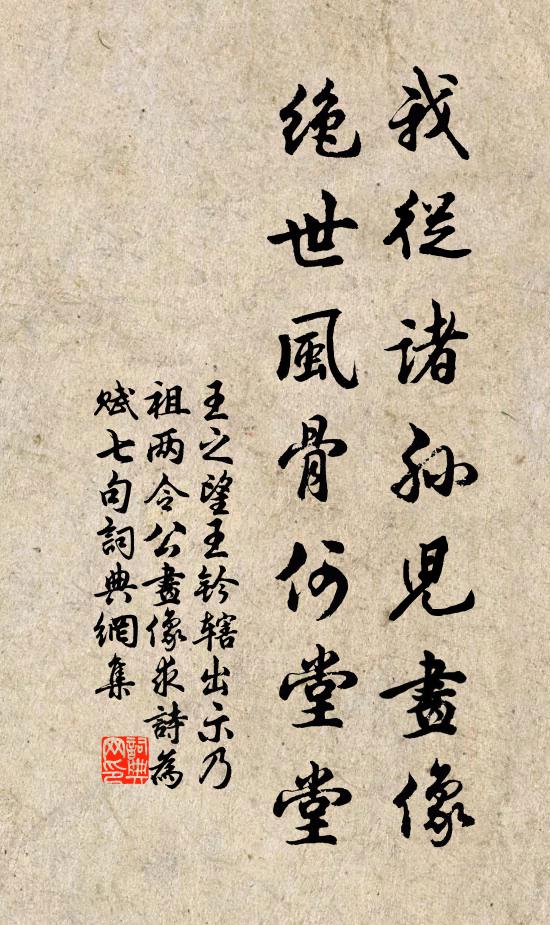 我從諸孫見畫像
絶世風骨何堂堂
王之望王鈐轄出示乃
祖两令公畫像求詩為
赋七句詞典網集
詞典
网印